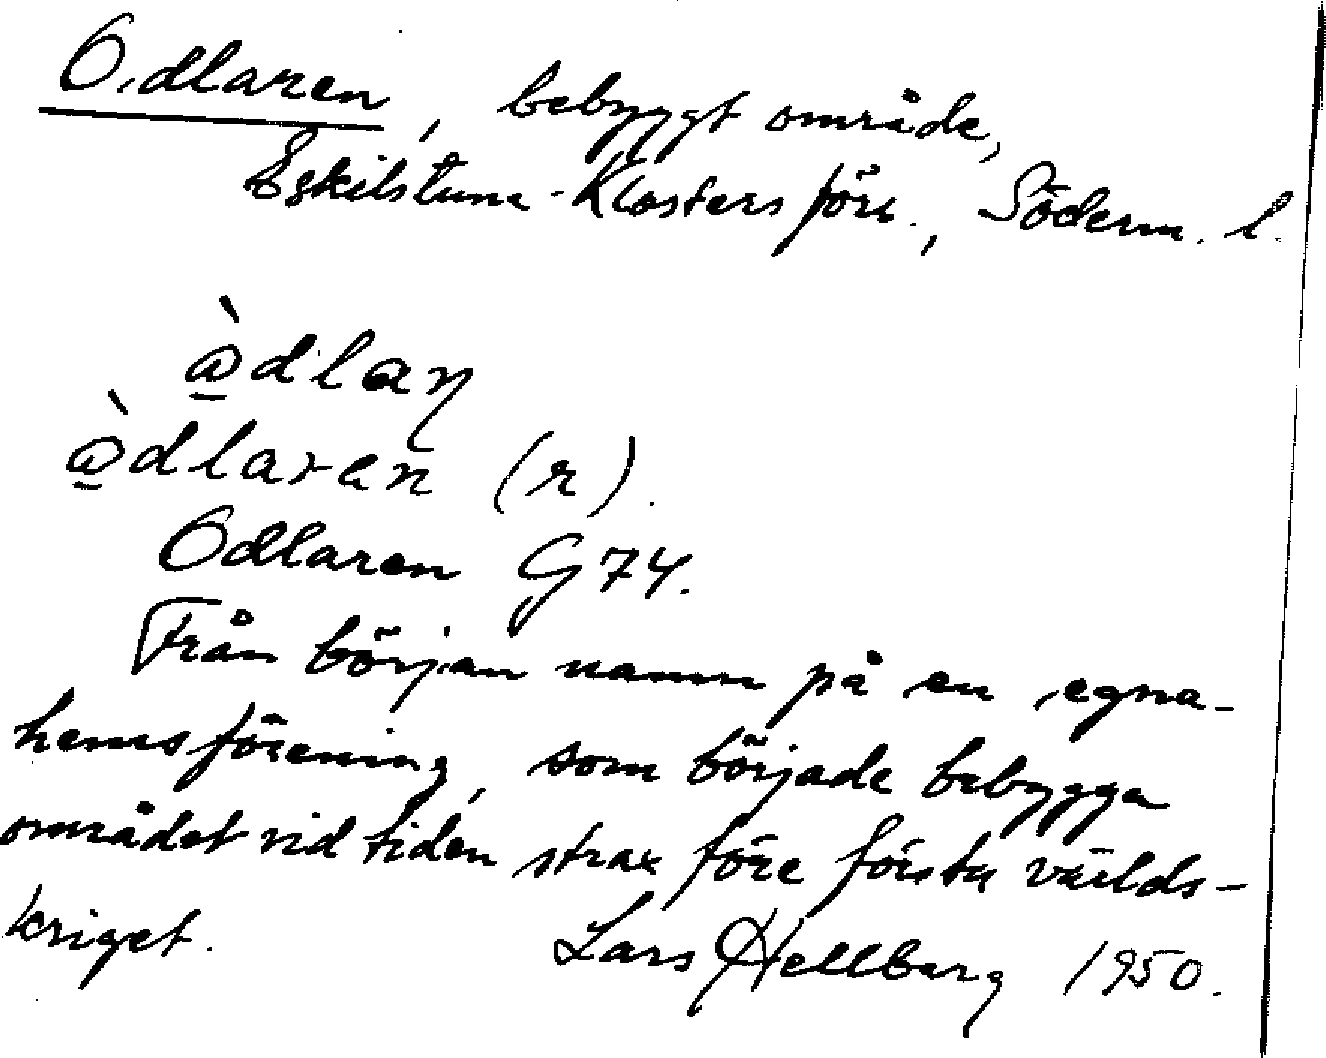 Odlaren, bebyggt område,
Eskilstuna-Klosters förs., Söderm. l.
òdlaɳ
òdlaren (r).
Odlaren G74.
Från början namn på en egna-
hemsförening, som började bebygga
området vid tiden strax före första världs-
kriget.
Lars Hellberg 1950.